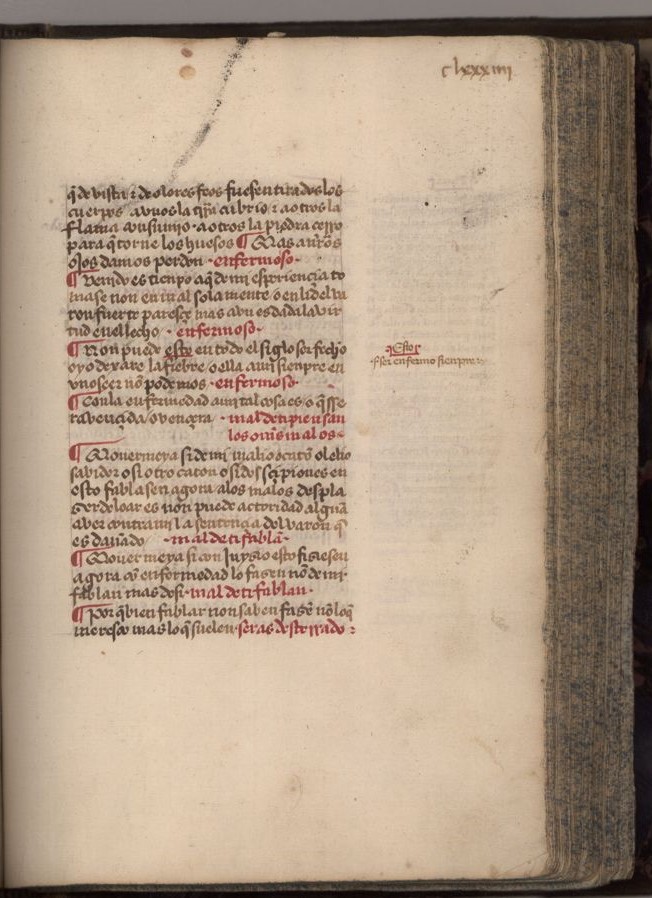 clxxxiiii
q̃ de vista ⁊ de olores feos fuesen tirados los
cuerpos a vnos la trr̃a cubrio ⁊ a otros la
flama consumio · a otros la piedra cerro
para q̃ torne los huesos ¶ Mas a nr̃os
ojos damos perdon · enfermoso ·
¶ Venido es tienpo a q̃ de mi esperiençia to
mase non en mal sola mente / o en lid el va
ron fuerte paresçe mas avn es dada la vir
tud en el lecho · enfermoso ·
¶ Non puede esto en todo el siglo ser fecho
o yo dexare la fiebre / o ella a mi sienpre en
vno ser nõ podemos · enfermoso ·
Esto
ser enfermo sienpre
¶ Con la enfermedad aun tal cosa es / o q̃ sse
ra vençida / o vençera · mal de ti piensan
los om̃s malos ·
¶ Mouer me ya si de mi malio o catõ o lelio
sabidor o si otro caton o si dos sçipiones en
esto fablasen agora a los malos despla
zer de loar es non puede actoridad algũa
aver contra mi la sentençia del varon q̃
es dañado · mal de ti fablã ·
¶ Mouer me ya si con juyzio esto fisiesen
agora cõ enfermedad lo fasen nõ de mi
fablan mas de si · mal de ti fablan ·
¶ Por q̃ bien fablar non saben fasẽ nõ lo q̃
meresco mas lo q̃ suelen · seras desterrado :